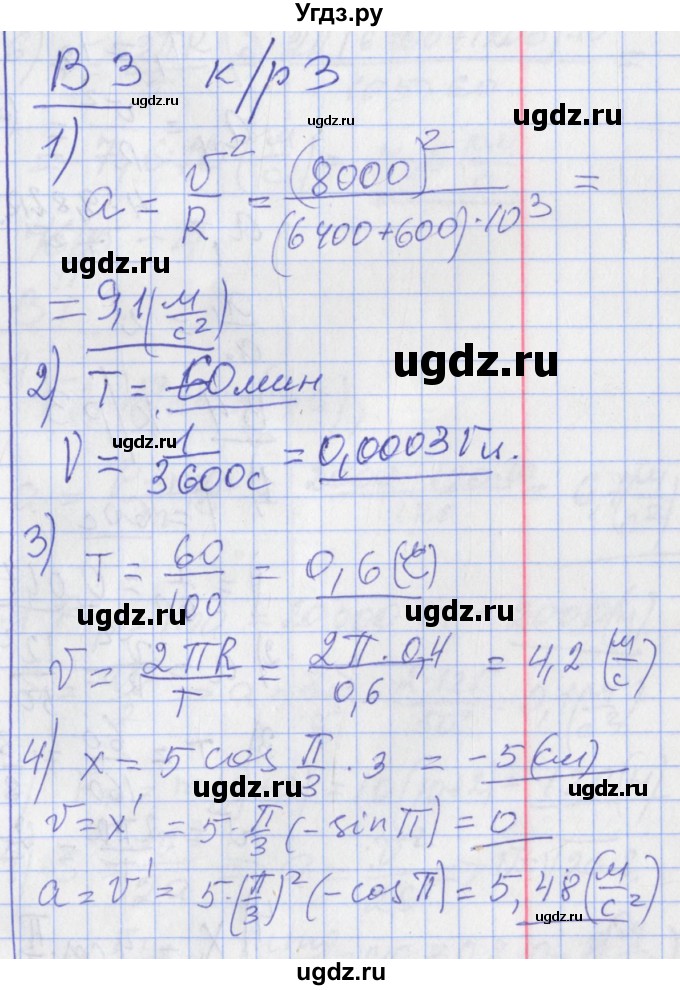 Угдз.ру
В 3 к/р 3
ugdz.ru ugdz.ru ugdz.ru
1)
a = v²/R = (8000)²/((6400+600)·10³) =
ugdz.ru
= 9,1 (м/с²)
ugdz.ru
2) T = 60 мин
ugdz.ru
ν = 1/3600с = 0,0003 Гц.
3) T = 60/100 = 0,6 (с)
ugdz.ru ugdz.ru
v = 2πR/T = 2π·0,4/0,6 = 4,2 (м/с)
4) x = 5 cos π/3 · 3 = -5 (см)
ugdz.ru ugdz.ru
v = x' = 5·π/3 (-sin π) = 0
a = v' = 5·(π/3)² (-cos π) = 5,48 (м/с²)
ugdz.ru
ugdz.ru